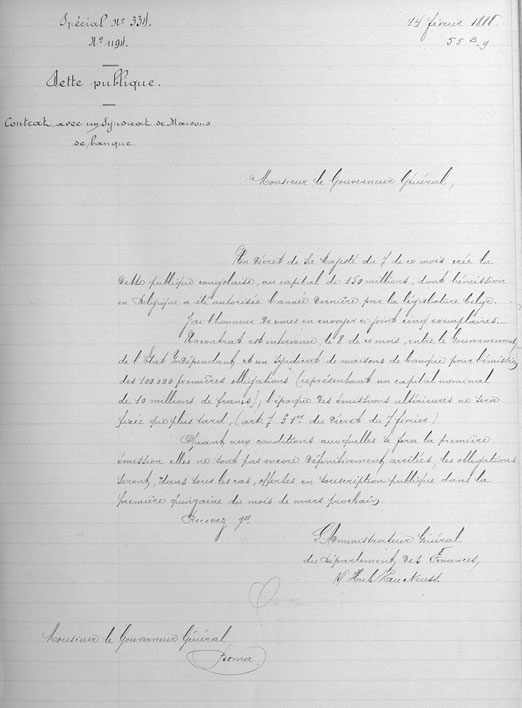 Spécial Nº 334.
Nº 1194.
14 février 188
55 B 9
Dette publique.
Contrat avec un Syndicat de Maisons
de banque.
Monsieur le Gouverneur Général,
Un Décret de Sa Majesté du 7 de ce mois crée la
Dette publique congolaise, au capital de 150 millions, dont l'émission
en Belgique a été autorisée l'année dernière par la législature belge.
J'ai l'honneur de vous en envoyer ci joint cinq exemplaires.
Un contrat est intervenu, le 8 de ce mois, entre le Gouvernement
de l'Etat Indépendant et un Syndicat de maisons de banque pour l'émission
des 100 000 premières obligations (représentant un capital nominal
de 10 millions de francs), l'époque des émissions ultérieures ne sera
fixée que plus tard, (art. 7 § 1er du Décret du 7 février).
Quant aux conditions auxquelles se fera la première
émission elles ne sont pas encore définitivement arrêtées, les obligations
seront, dans tous les cas, offertes en souscription publique dans la
première quinzaine du mois de mars prochain.
Recevez
L'Administrateur Général
du Département des Finances,
Hub Van Neuss.
Monsieur le Gouverneur Général
Boma